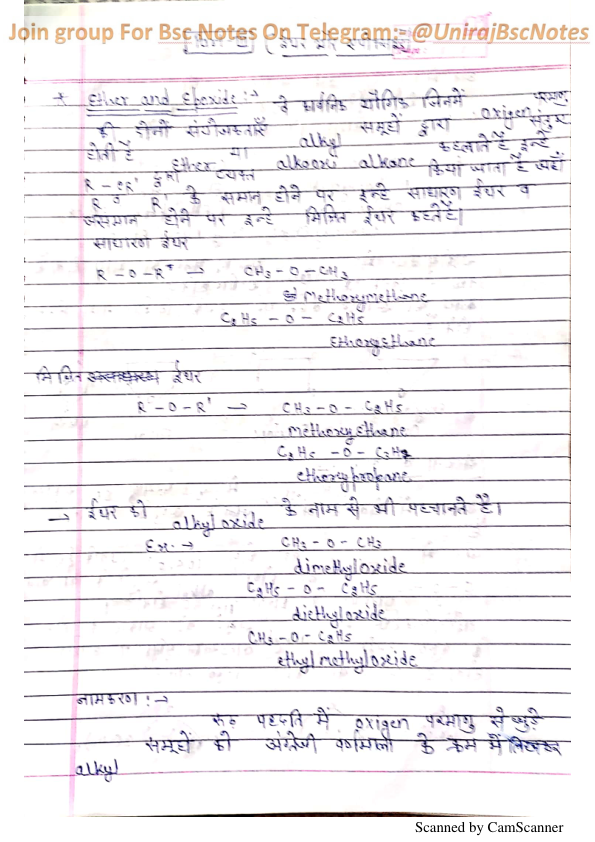 Join group For Bsc Notes On Telegram:- @UnirajBscNotes
( ईथर और
* Ether and Epoxide :→ वे कार्बनिक यौगिक जिनमें परमाणु
की दोनों संयोजकताएँ समूहों द्वारा origen संतुष्ट
होती है या alkyl कहलाते हैं इन्हें
R - OR' द्वारा व्यक्त Ether alkooxi alkane किया जाता है जहाँ
R व R' के समान होने पर इन्हे साधारण ईथर व
असमान होने पर इन्हे मिश्रित ईथर कहते हैं।
साधारण ईथर
R - O - R' → CH3 - O - CH3
Methoxymethane
C2H5 - O - C2H5
Ethoxyethane
मिश्रित ईथर
R - O - R' → CH3 - O - C2H5
methoxyethane
C2H5 - O - C3H7
ethoxypropane
→ ईथर को alkyloxide के नाम से भी पहचानते है।
Ex. → CH3 - O - CH3
dimethyloxide
C2H5 - O - C2H5
diethyloxide
CH3 - O - C2H5
ethylmethyloxide
नामकरण :→
रूढ़ पद्दति में origen परमाणु से जुड़े
समूहों को अंग्रेजी वर्णमाला के क्रम में लिखकर
alkyl
Scanned by CamScanner